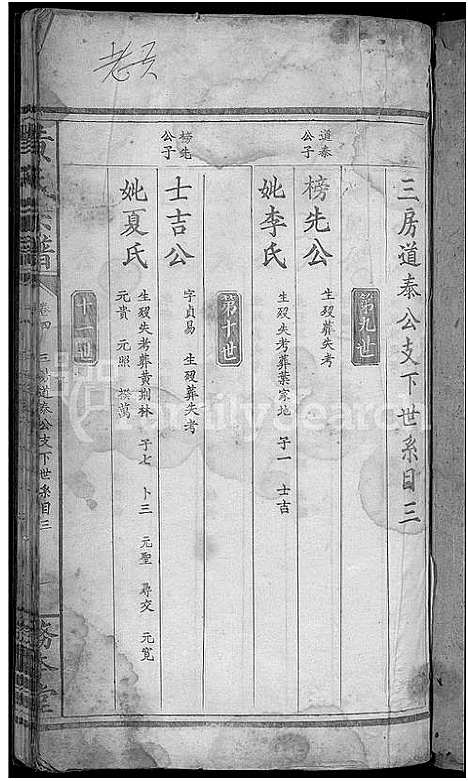 老頁
三房道泰公支下世系目三
第九世
道泰公子
榜先公
生殁失考
妣李氏
生殁失考葬葉家地 子一 士吉
第十世
榜先公子
士吉公
字貞易 生殁葬失考
妣夏氏
生殁失考葬黄荆林 子七 卜三 元聖 尋交 元寬
元貴 元照  萬
十一世
黄氏宗譜
卷四 三房道泰公支下世系目三
堂
FamilySearch